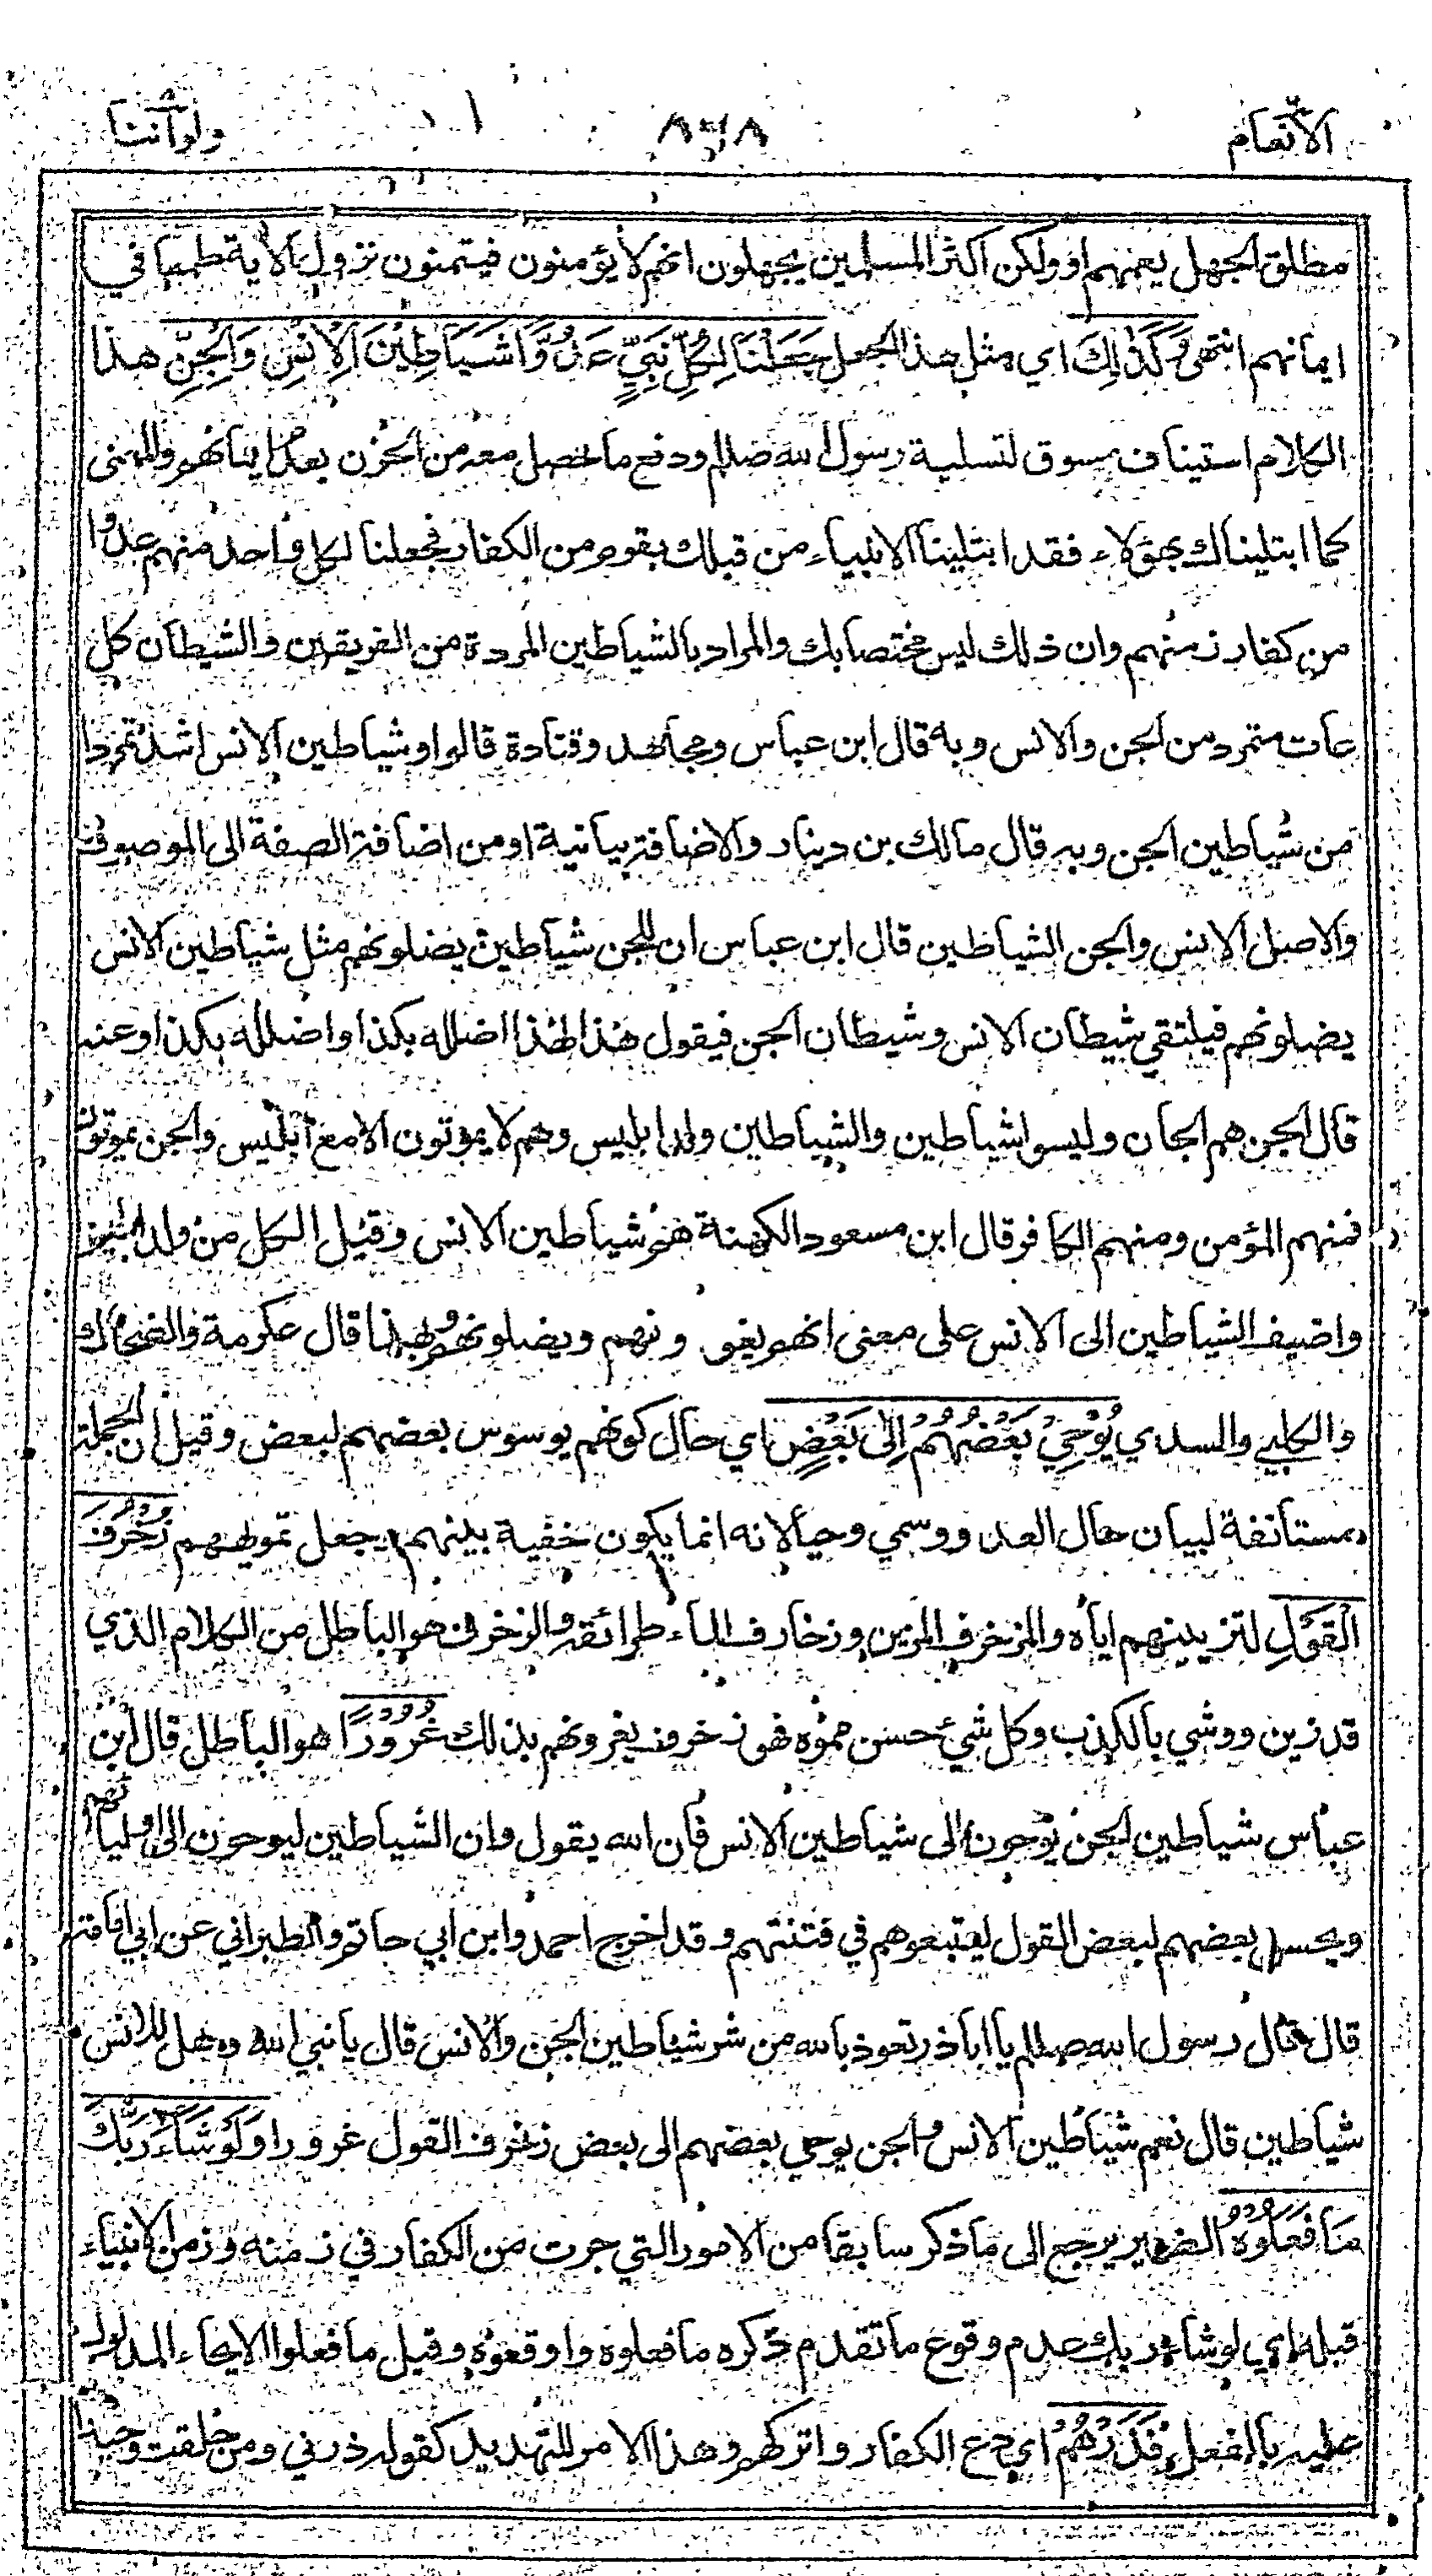 الانعام ٨٦٨ ولو اننا
مطلق الجهل يعمهم او ولكن اكثر المسلمين يجهلون انهم لا يؤمنون فيتمنون نزول الآية طمعا في
ايمانهم انتهى وَكَذٰلِكَ اي مثل هذا الجعل جَعَلْنَا لِكُلِّ نَبِيٍّ عَدُوًّا شَيَاطِيْنَ الْاِنْسِ وَالْجِنِّ هذا
الكلام استيناف مسوق لتسلية رسول الله صللم ودفع ما حصل معه من الحزن بعدم ايمانهم والمعنى
كما ابتليناك بهؤلاء فقد ابتلينا الانبياء من قبلك بقوم من الكفار فجعلنا لكل واحد منهم عدوا
من كفار زمنهم وان ذلك ليس مختصا بك والمراد بالشياطين المردة من الفريقين والشيطان كل
عات متمرد من الجن والانس وبه قال ابن عباس ومجاهد وقتادة قالوا وشياطين الانس اشد تمردا
من شياطين الجن وبه قال مالك بن دينار والاضافة بيانية او من اضافة الصفة الى الموصوف
والاصل الانس والجن الشياطين قال ابن عباس ان للجن شياطين يضلونهم مثل شياطين الانس
يضلونهم فيلتقي شيطان الانس وشيطان الجن فيقول هذا لهذا اضلله بكذا واضلله بكذا وعنه
قال الجن هم الجان وليسوا شياطين والشياطين ولد ابليس وهم لا يموتون الا مع ابليس والجن يموتون
فمنهم المؤمن ومنهم الكافر وقال ابن مسعود الكهنة هم شياطين الانس وقيل الكل من ولد ابليس
واضيف الشياطين الى الانس على معنى انهم يغو ونهم ويضلونهم وبهذا قال عكرمة والضحاك
والكلبي والسدي يُوْحِيْ بَعْضُهُمْ اِلٰى بَعْضٍ اي حال كونهم يوسوس بعضهم لبعض وقيل ان الجملة
مستانفة لبيان حال العدو وسمي وحيا لانه انما يكون خفية بينهم وجعل تمويههم زُخْرُفَ
الْقَوْلِ لتزيينهم اياه والمزخرف المزين وزخارف الماء طرائقه والزخرف هو الباطل من الكلام الذي
قد زين ووشي بالكذب وكل شيء حسن مموه فهو زخرف يغرونهم بذلك غُرُوْرًا هو الباطل قال ابن
عباس شياطين الجن يوحون الى شياطين الانس فان الله يقول وان الشياطين ليوحون الى اوليائهم
ويحسن بعضهم لبعض القول ليتبعوهم في فتنتهم وقد اخرج احمد وابن ابي حاتم والطبراني عن ابي امامة
قال قال رسول الله صللم يا اباذر تعوذ بالله من شر شياطين الجن والانس قال يا نبي الله وهل للانس
شياطين قال نعم شياطين الانس والجن يوحي بعضهم الى بعض زخرف القول غرورا وَلَوْ شَاءَ رَبُّكَ
مَا فَعَلُوْهُ الضمير يرجع الى ما ذكر سابقا من الامور التي جرت من الكفار في زمنه وزمن الانبياء
قبله اي لو شاء ربك عدم وقوع ما تقدم ذكره ما فعلوه واوقعوه وقيل ما فعلوا الايحاء المدلول
عليه بالفعل فَذَرْهُمْ اي دع الكفار واتركهم وهذا الامر للتهديد كقوله ذرني ومن خلقت وحيدا